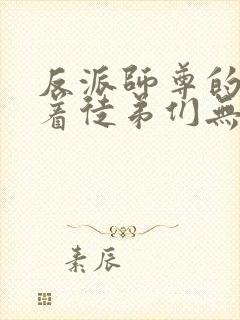 反派師尊的
着徒弟们無
素辰